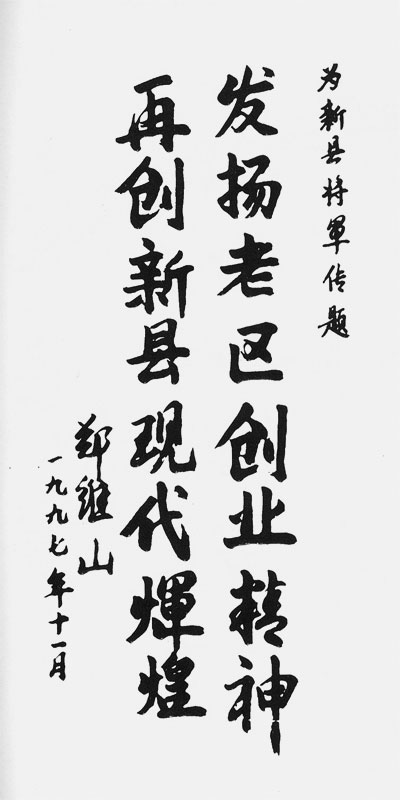 为新县将军传题
发扬老区创业精神
再创新县现代煇煌
郑维山
一九九七年十一月